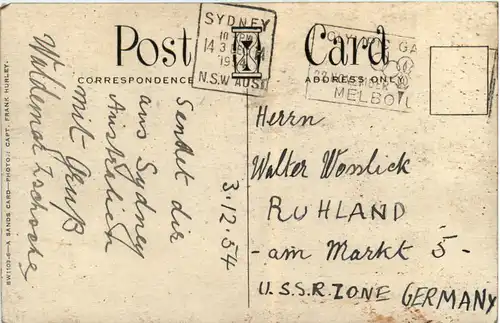 Post Card
CORRESPONDENCE
ADDRESS ONLY
SYDNEY
N.S.W AUST
MELBO
Sendet dir
aus Sydney
Australien
mit Gruß
Waldemar
3.12.54
Herrn
Walter Wosslick
RUHLAND
- am Markt 5 -
U.S.S.R. ZONE GERMANY
A SANDS CARD—PHOTO: CAPT. FRANK HURLEY.